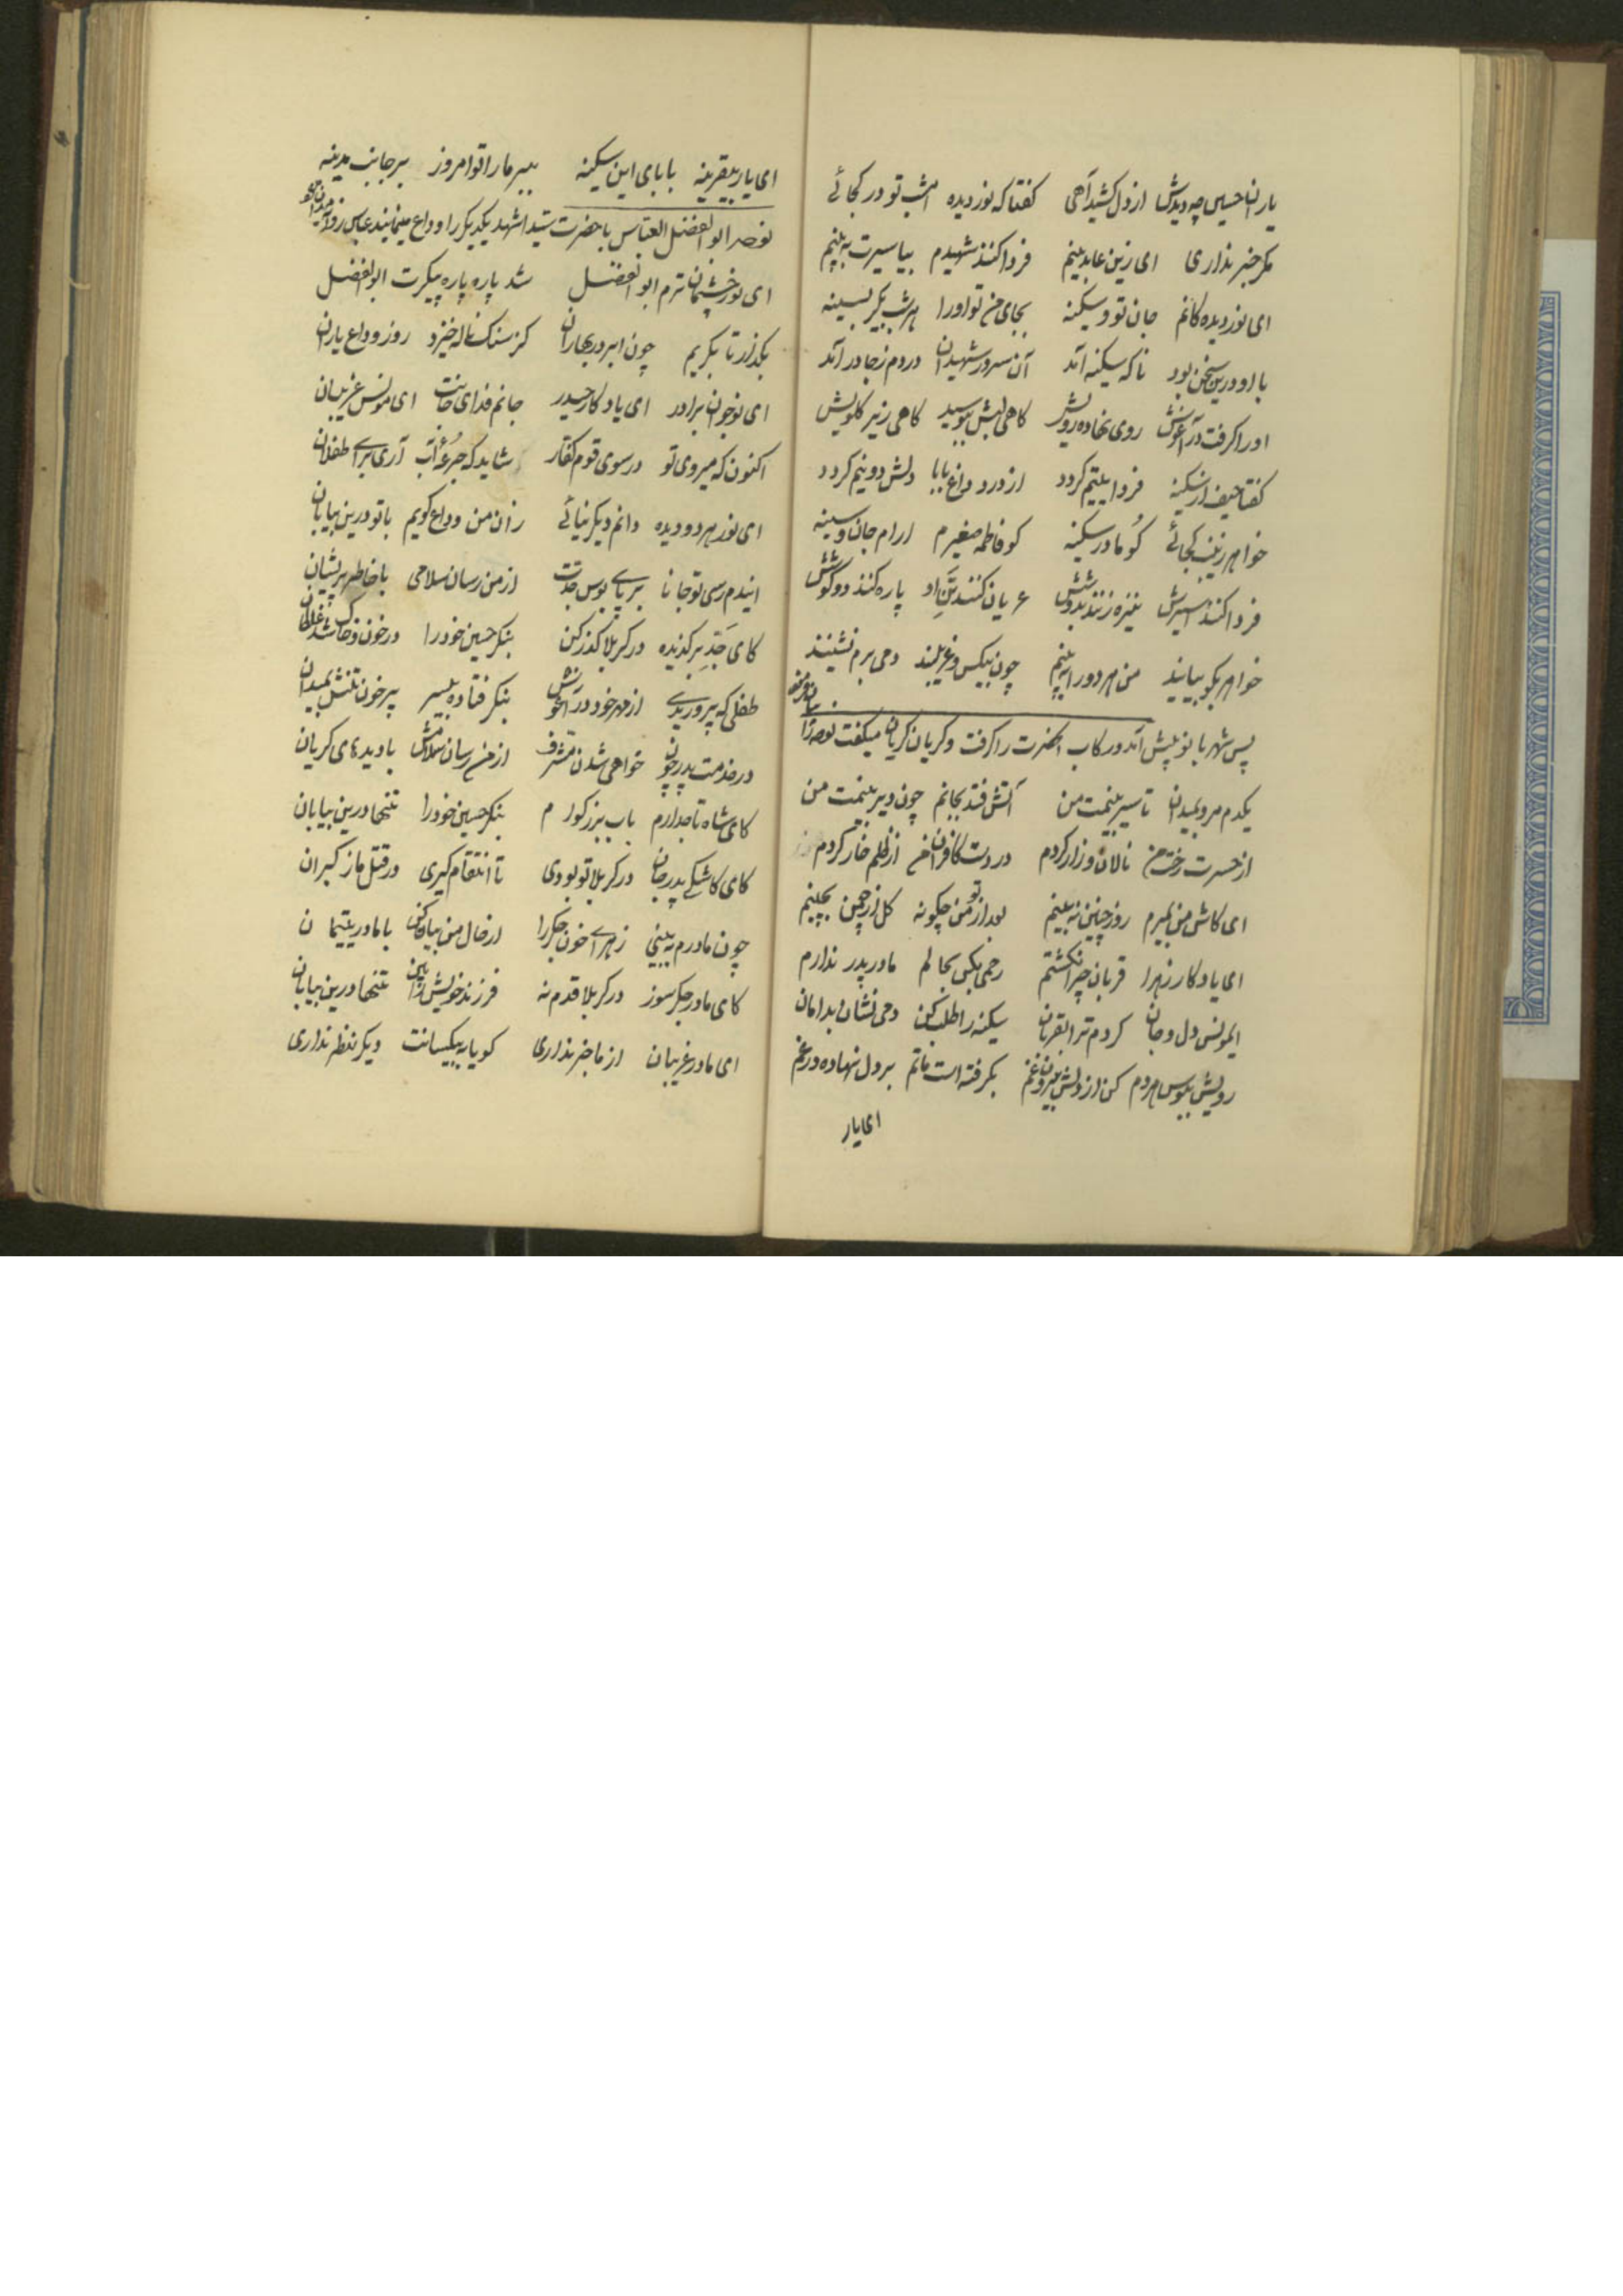 یاران حسین چه دیدش از دل کشید آهی کفتا که نور دیده امشب تو در کجائی
مکر خبر نداری ای زین عابدینم فردا کنند شهیدم بیا سیرت به بینم
ای نور دیده کانم جان تو و سکینه بجای من تو اورا هر شب بکیر بسینه
با او درین سخن بود ناکه سکینه آمد آن سرور شهیدان در دم ز جا در آمد
اورا کرفت در آغوش روی نهاده برویش کاهی لبش ببوسید کاهی زیر کلویش
کفتا حیف از سکینه فردا یتیم کردد از درد داغ بابا دلش دو نیم کردد
خواهر زینب کجائی کو مادر سکینه کو فاطمه صغیرم ارام جان و سینه
فردا کنند اسیرش نیزه زنند بدوشش عریان کنند تن او پاره کنند دو کوشش
خواهر بکو بیایند من هر دو را به بینم چون بیکس و غریبند دمی برم نشینند
پس شهربانو پیش آمد و رکاب انحضرت را کرفت و کریان کریان میکفت نوحه زا
یکدم مرو بمیدان تا سیر بینمت من آتش فتد بجانم چون دیر بینمت من
از حسرت رخت من نالان و زار کردم در دست کافران من از ظلم خار کردم
ای کاش من بمیرم روز چنین نه بینم بعد از تو من چکونه کل از چمن بچینم
ای یادکار زهرا قربان چرا نکشتم رحمی بکن بحالم مادر پدر ندارم
ایمونس دل و جان کردم ترا بقربان سکینه را طلب کن دمی نشان بدامان
رویش ببوس هر دم کن از دلش برون غم بکرفته است ماتم بر دل نهاده در غم
ای یار
ای یار بیقرینه بابای این سکینه ببر مارا تو امروز بر جانب مدینه
نوحه ابوالفضل العباس با حضرت سید الشهدا یکدیکر را وداع مینمایند عباس
ای نور چشمان ترم ابوالفضل شد پاره پاره پیکرت ابوالفضل
بکذار تا بکریم چون ابر در بهاران کز سنک ناله خیزد روز وداع یاران
ای نوجوان برادر ای یادکار حیدر جانم فدای جانت ای مونس غریبان
اکنون که میروی تو در سوی قوم کفار شاید که جرعه آب آری برای طفلان
ای نور هر دو دیده دانم دیکر نیائی زان من وداع کویم با تو درین بیابان
ایندم رسی تو جانا بر پای بوس جدت از من رسان سلامی با خاطر پریشان
کای جد برکزیده در کربلا کذر کن بنکر حسین خودرا در خون و خاک غلطان
طفلی که پروریدی از مهر خود در آغوش بنکر فتاده بیسر پر خون تنش بمیدان
در خدمت پدر چون خواهی شدن مشرف از من رسان سلامش با دیدهای کریان
کای شاه تاجدارم باب بزرکوارم بنکر حسین خودرا تنها درین بیابان
کای کاشکی پدر جان در کربلا تو بودی تا انتقام کیری در قتل ما ز کبران
چون مادرم به بینی زهرای خون جکر را از حال من بیان کن با مادر یتیمان
کای مادر جکر سوز در کربلا قدم نه فرزند خویش را بین تنها درین بیابان
ای مادر غریبان از ما خبر نداری کویا به بیکسانت دیکر نظر نداری